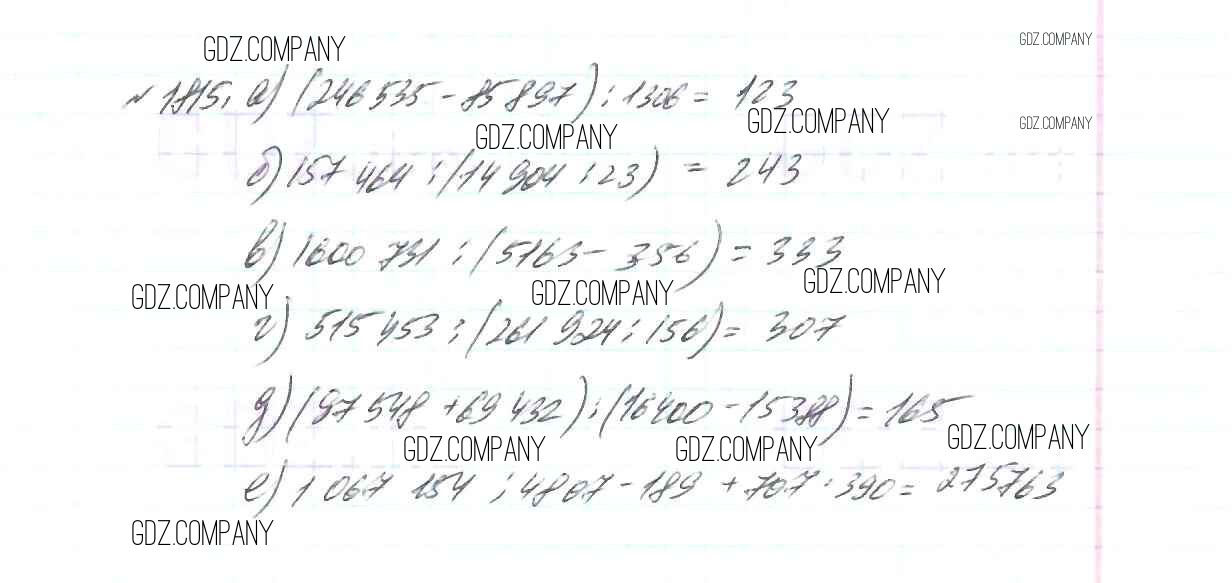 GDZ.COMPANY
GDZ.COMPANY
№ 1815. а) (246 535 - 85 897) : 1306 = 123
GDZ.COMPANY
GDZ.COMPANY
GDZ.COMPANY
б) 157 464 : (14 904 : 23) = 243
в) 1600 731 : (5163 - 356) = 333
GDZ.COMPANY
GDZ.COMPANY
GDZ.COMPANY
г) 515 453 : (261 924 : 156) = 307
д) (97 548 + 69 432) : (16400 - 15388) = 165
GDZ.COMPANY
GDZ.COMPANY
GDZ.COMPANY
е) 1 067 154 : 4807 - 189 + 707 · 390 = 275763
GDZ.COMPANY